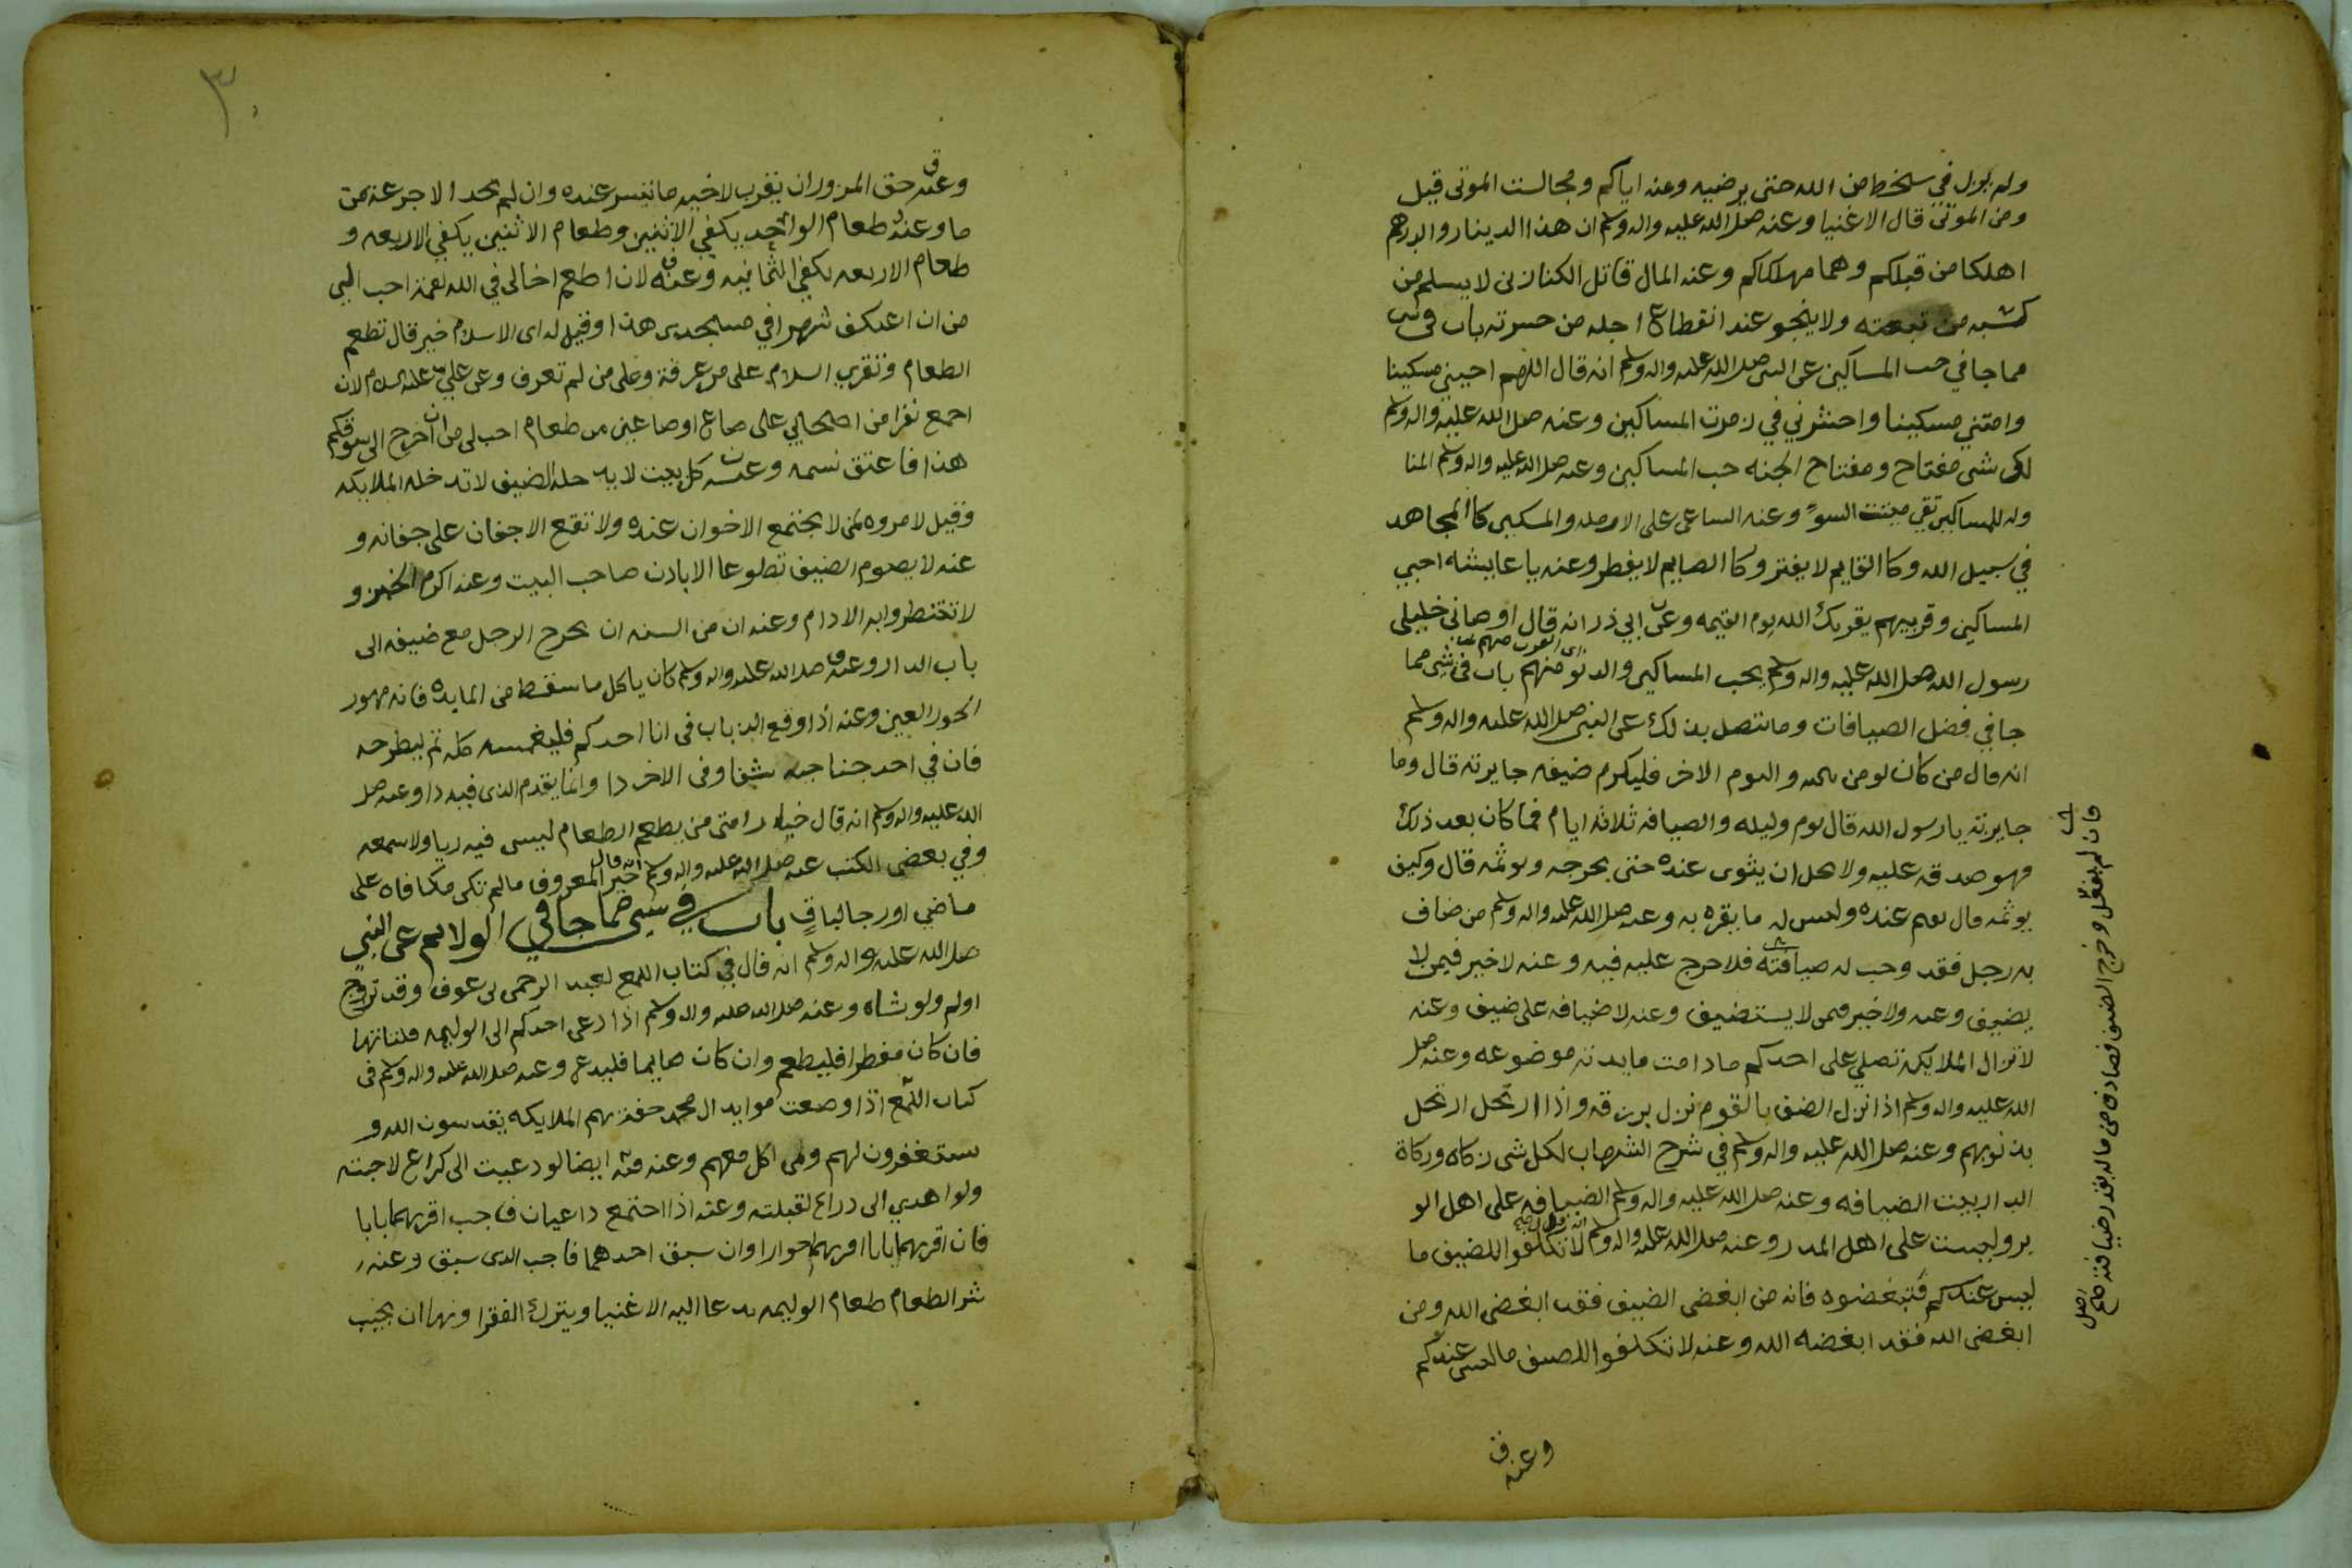 ولم يزل في سخط من الله حتى يرضيه وعنه اياكم ومجالست الموتى قيل
ومن الموتى قال الاغنيا وعنه صلى الله عليه واله وسلم ان هذا الدينار والدرهم
اهلكا من قبلكم وهما مهلكاكم وعنه المال قاتل الكنازني لا يسلم من
كسبه من تبعته ولا ينجو عند انقطاع اجله من حسرته باب في
مما جا في حب المساكين عن النبي صلى الله عليه واله وسلم انه قال اللهم احييني مسكينا
وامتني مسكينا واحشرني في زمرت المساكين وعنه صلى الله عليه واله وسلم
لكل شي مفتاح ومفتاح الجنه حب المساكين وعنه صلى الله عليه واله وسلم المنا
وله للمساكين تقي ميتت السو وعنه الساعي على الارمله والمسكين كا المجاهد
في سبيل الله وكا القايم لا يفتر وكا الصايم لا يفطر وعنه يا عايشه احبي
المساكين وقربيهم يقربك الله يوم القيمه وعن ابي ذر انه قال اوصاني خليلي
رسول الله صلى الله عليه واله وسلم بحب المساكين والدنو منهم باب في شي مما
جا في فضل الضيافات وما يتصل بذلك عن النبي صلى الله عليه واله وسلم
انه قال من كان يومن بالله واليوم الاخر فليكرم ضيفه جايزته قال وما
جايزته يا رسول الله قال يوم وليله والضيافه ثلاثه ايام فما كان بعد ذلك
فهو صدقه عليه ولا هل ان يثوى عنده حتى يحرجه ويوثمه قال وكيف
يوثمه قال يقيم عنده وليس له ما يقره به وعنه صلى الله عليه واله وسلم من ضاف
به رجل فقد وجب له ضيافته فلا حرج عليه فيه وعنه لا خير فيمن لا
يضيف وعنه ولا خير فيمن لا يستضيف وعنه لا ضيافه على ضيف وعنه
لا تزال الملايكة تصلي على احدكم ما دامت مايدته موضوعه وعنه صلى
الله عليه واله وسلم اذا نزل الضيف بالقوم نزل برزقه واذا ارتحل ارتحل
بذنوبهم وعنه صلى الله عليه واله وسلم في شرح الشهاب لكل شي زكاه وزكاة
الدار بيت الضيافه وعنه صلى الله عليه واله وسلم الضيافه على اهل الو
بر وليست على اهل المدر وعنه صلى الله عليه واله وسلم لا تكلفوا للضيف ما
ليس عندكم فتبغضوه فانه من ابغض الضيف فقد ابغض الله ومن
ابغض الله فقد ابغضه الله وعنه لا تكلفوا للضيف ما ليس عندكم
وعنه
فان لم يفعل وخرج الضيف فصادف من ماله بقدر ضيافته
اصل
٣٠
وعنه حق المزور ان يقرب لاخيه ما تيسر عنده وان لم يجد الا جرعه من
ما وعنه طعام الواحد يكفي الاثنين وطعام الاثنين يكفي الاربعه و
طعام الاربعه يكفي الثمانيه وعنه لان اطعم اخا لي في الله لقمة احب الي
من ان اعتكف شهرا في مسجدي هذا وقيل له اي الاسلام خير قال تطعم
الطعام وتقري السلام على من عرفة وعلى من لم تعرف وعن علي عليه السلام لان
اجمع نفرا من اصحابي على صاع او صاعين من طعام احب لي من ان اخرج الى سوقكم
هذا فاعتق نسمه وعنه كل بيت لا يدخله الضيف لا تدخله الملايكه
وقيل لا مروه لمن لا يجتمع الاخوان عنده ولا تقع الاجفان على جفانه و
عنه لا يصوم الضيف تطوعا الا باذن صاحب البيت وعنه اكرموا الخبز و
لا تنتظروا به الادام وعنه ان من السنه ان يخرج الرجل مع ضيفه الى
باب الدار وعنه صلى الله عليه واله وسلم كان ياكل ما سقط من المايده فانه مهور
الحور العين وعنه اذا وقع الذباب في انا احدكم فليغمسه كله ثم ليطرحه
فان في احد جناحيه شفا وفي الاخر دا وانما يقدم الذي فيه دا وعنه صلى
الله عليه واله وسلم انه قال خيار امتي من يطعم الطعام ليس فيه ريا ولا سمعه
وفي بعض الكتب عنه صلى الله عليه واله وسلم انه قال خير المعروف ما لم تكن مكافاه على
ماضي اورجا لباق باب في شي مما جا في الولايم عن النبي
صلى الله عليه واله وسلم انه قال في كتاب اللمع لعبد الرحمن بن عوف وقد تزوج
اولم ولو بشاه وعنه صلى الله عليه واله وسلم اذا دعي احدكم الى الوليمه فلياتها
فان كان مفطرا فليطعم وان كان صايما فليدع وعنه صلى الله عليه واله وسلم في
كتاب اللمع اذا وضعت موايد ال محمد حفت بهم الملايكه يقدسون الله و
يستغفرون لهم ولمن اكل معهم وعنه منه ايضا لو دعيت الى كراع لاجبته
ولو اهدي الى ذراع لقبلته وعنه اذا اجتمع داعيان فاجب اقربهما بابا
فان اقربهما بابا اقربهما جوارا وان سبق احدهما فاجب الذي سبق وعنه
شر الطعام طعام الوليمه يدعا اليه الاغنيا ويترك الفقرا ونهى ان يجيب